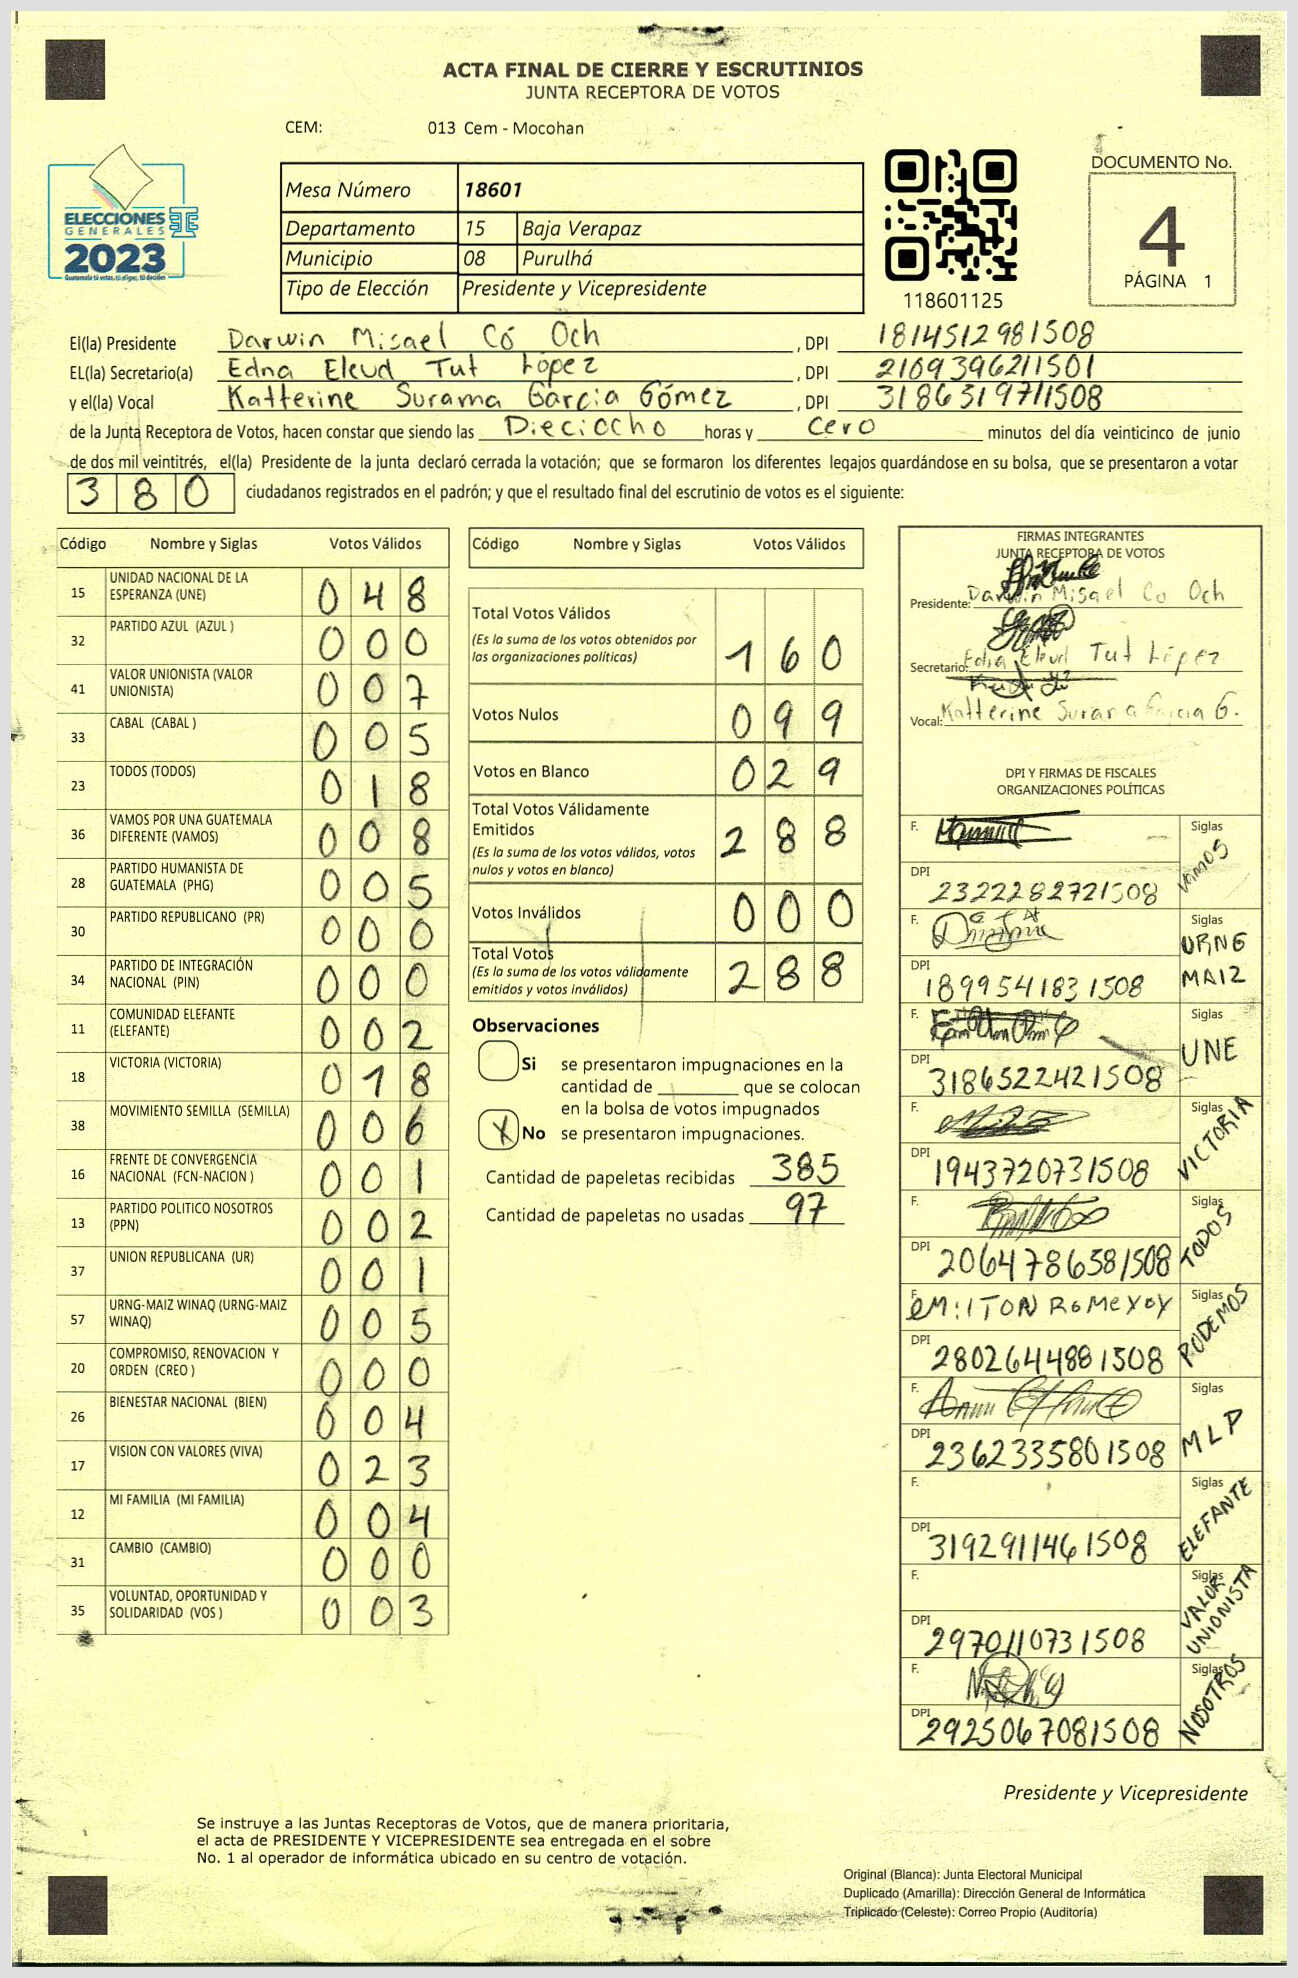 ACTA FINAL DE CIERRE Y ESCRUTINIOS
JUNTA RECEPTORA DE VOTOS
CEM: 013 Cem - Mocohan
ELECCIONES
GENERALES
2023
Guatemala tú votas, tú eliges, tú decides
Mesa Número 18601
Departamento 15 Baja Verapaz
Municipio 08 Purulhá
Tipo de Elección Presidente y Vicepresidente
118601125
DOCUMENTO No.
4
PÁGINA 1
El(la) Presidente Darwin Misael Có Och , DPI 1814512981508
EL(la) Secretario(a) Edna Eleud Tut López , DPI 2109396211501
y el(la) Vocal Katterine Surama Garcia Gómez , DPI 3186319711508
de la Junta Receptora de Votos, hacen constar que siendo las Dieciocho horas y cero minutos del día veinticinco de junio
de dos mil veintitrés, el(la) Presidente de la junta declaró cerrada la votación; que se formaron los diferentes legajos guardándose en su bolsa, que se presentaron a votar
380 ciudadanos registrados en el padrón; y que el resultado final del escrutinio de votos es el siguiente:
Código Nombre y Siglas Votos Válidos
15 UNIDAD NACIONAL DE LA ESPERANZA (UNE) 048
32 PARTIDO AZUL (AZUL ) 000
41 VALOR UNIONISTA (VALOR UNIONISTA) 007
33 CABAL (CABAL ) 005
23 TODOS (TODOS) 018
36 VAMOS POR UNA GUATEMALA DIFERENTE (VAMOS) 008
28 PARTIDO HUMANISTA DE GUATEMALA (PHG) 005
30 PARTIDO REPUBLICANO (PR) 000
34 PARTIDO DE INTEGRACIÓN NACIONAL (PIN) 000
11 COMUNIDAD ELEFANTE (ELEFANTE) 002
18 VICTORIA (VICTORIA) 018
38 MOVIMIENTO SEMILLA (SEMILLA) 006
16 FRENTE DE CONVERGENCIA NACIONAL (FCN-NACION ) 001
13 PARTIDO POLITICO NOSOTROS (PPN) 002
37 UNION REPUBLICANA (UR) 001
57 URNG-MAIZ WINAQ (URNG-MAIZ WINAQ) 005
20 COMPROMISO, RENOVACION Y ORDEN (CREO ) 000
26 BIENESTAR NACIONAL (BIEN) 004
17 VISION CON VALORES (VIVA) 023
12 MI FAMILIA (MI FAMILIA) 004
31 CAMBIO (CAMBIO) 000
35 VOLUNTAD, OPORTUNIDAD Y SOLIDARIDAD (VOS ) 003
Código Nombre y Siglas Votos Válidos
Total Votos Válidos
(Es la suma de los votos obtenidos por
las organizaciones políticas) 160
Votos Nulos 099
Votos en Blanco 029
Total Votos Válidamente
Emitidos
(Es la suma de los votos válidos, votos
nulos y votos en blanco) 288
Votos Inválidos 000
Total Votos
(Es la suma de los votos válidamente
emitidos y votos inválidos) 288
Observaciones
Si se presentaron impugnaciones en la
cantidad de ________ que se colocan
en la bolsa de votos impugnados
X No se presentaron impugnaciones.
Cantidad de papeletas recibidas 385
Cantidad de papeletas no usadas 97
FIRMAS INTEGRANTES
JUNTA RECEPTORA DE VOTOS
Presidente: Darwin Misael Có Och
Secretario: Edna Eleud Tut López
Vocal: Katterine Surama Garcia G.
DPI Y FIRMAS DE FISCALES
ORGANIZACIONES POLÍTICAS
F. Siglas VAMOS
DPI 2322282721508
F. Siglas URNG MAIZ
DPI 1899541831508
F. Siglas UNE
DPI 3186522421508
F. Siglas VICTORIA
DPI 1943720731508
F. Siglas TODOS
DPI 2064786581508
F. Siglas PODEMOS
DPI 2802644881508
F. Siglas MLP
DPI 2362335801508
F. Siglas ELEFANTE
DPI 3192911461508
F. Siglas VALOR UNIONISTA
DPI 2970110731508
F. Siglas NOSOTROS
DPI 2925067081508
Presidente y Vicepresidente
Se instruye a las Juntas Receptoras de Votos, que de manera prioritaria,
el acta de PRESIDENTE Y VICEPRESIDENTE sea entregada en el sobre
No. 1 al operador de informática ubicado en su centro de votación.
Original (Blanca): Junta Electoral Municipal
Duplicado (Amarilla): Dirección General de Informática
Triplicado (Celeste): Correo Propio (Auditoría)